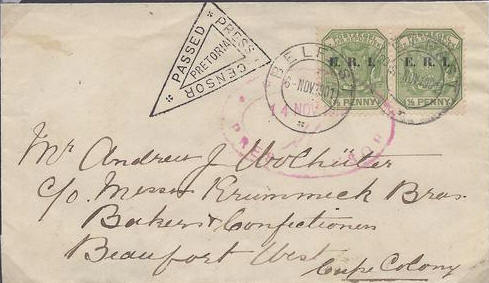 PASSED
PRESS
CENSOR
PRETORIA
BELFAST
NOV 1901
E. R. I.
E. R. I.
½ PENNY
½ PENNY
14 NOV
PRE
Mr Andrew J Wolhüter
c/o. Messrs Krummeck Bros.
Bakers & Confectioners
Beaufort West
Cape Colony